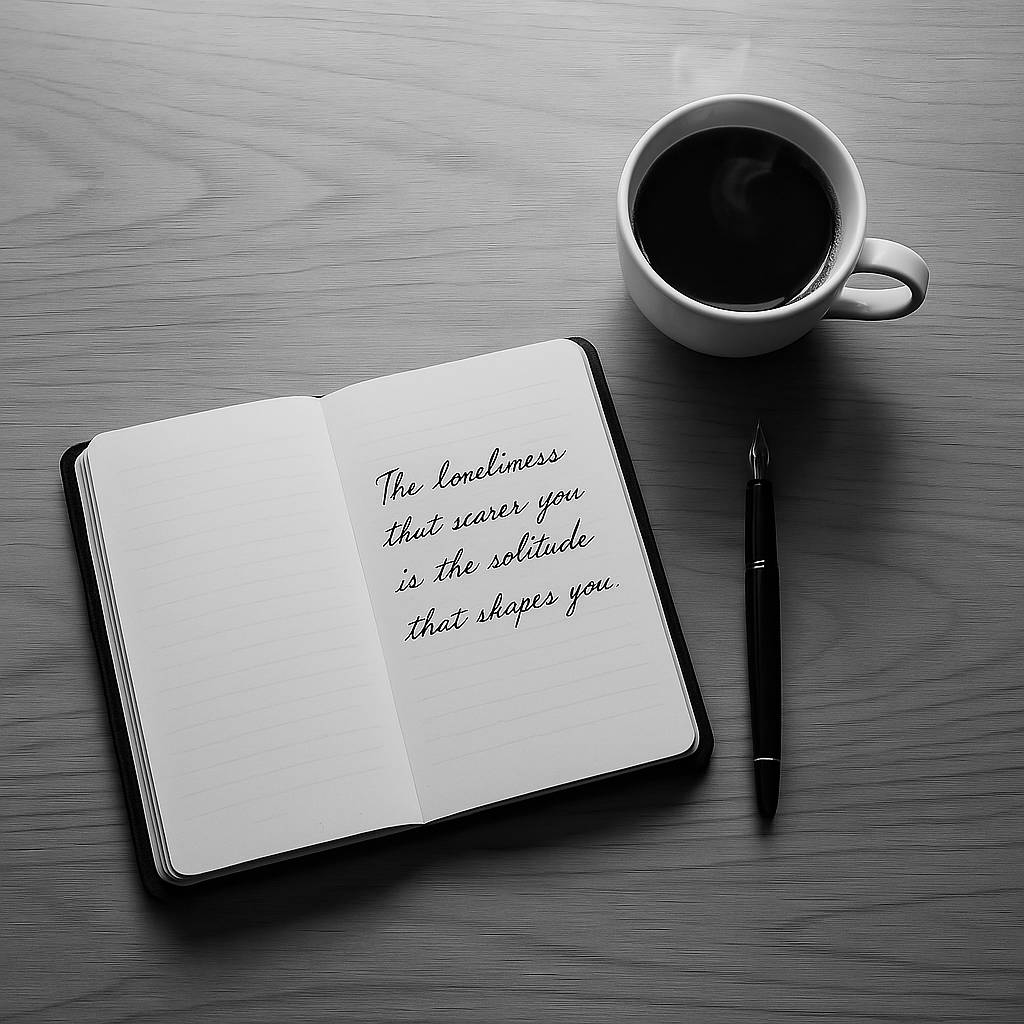 The lonelimess
thut scarer you
is the solitude
that shapes you.